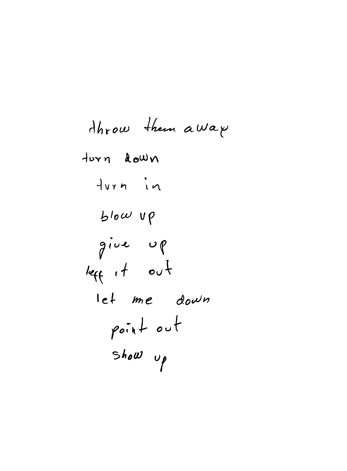 throw them away
turn down
turn in
blow up
give up
leff it out
let me down
point out
show up